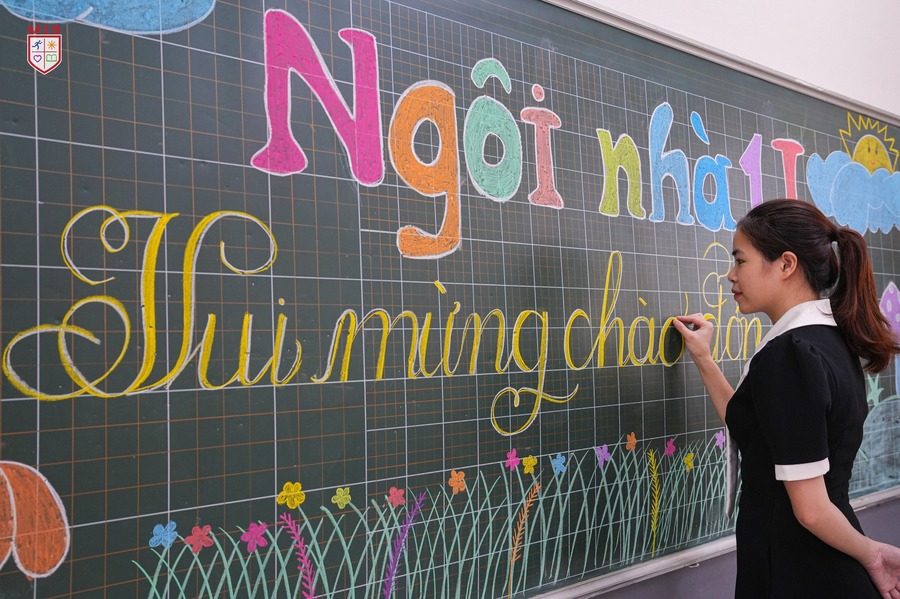 Ngôi nhà 1I
Vui mừng chào đón